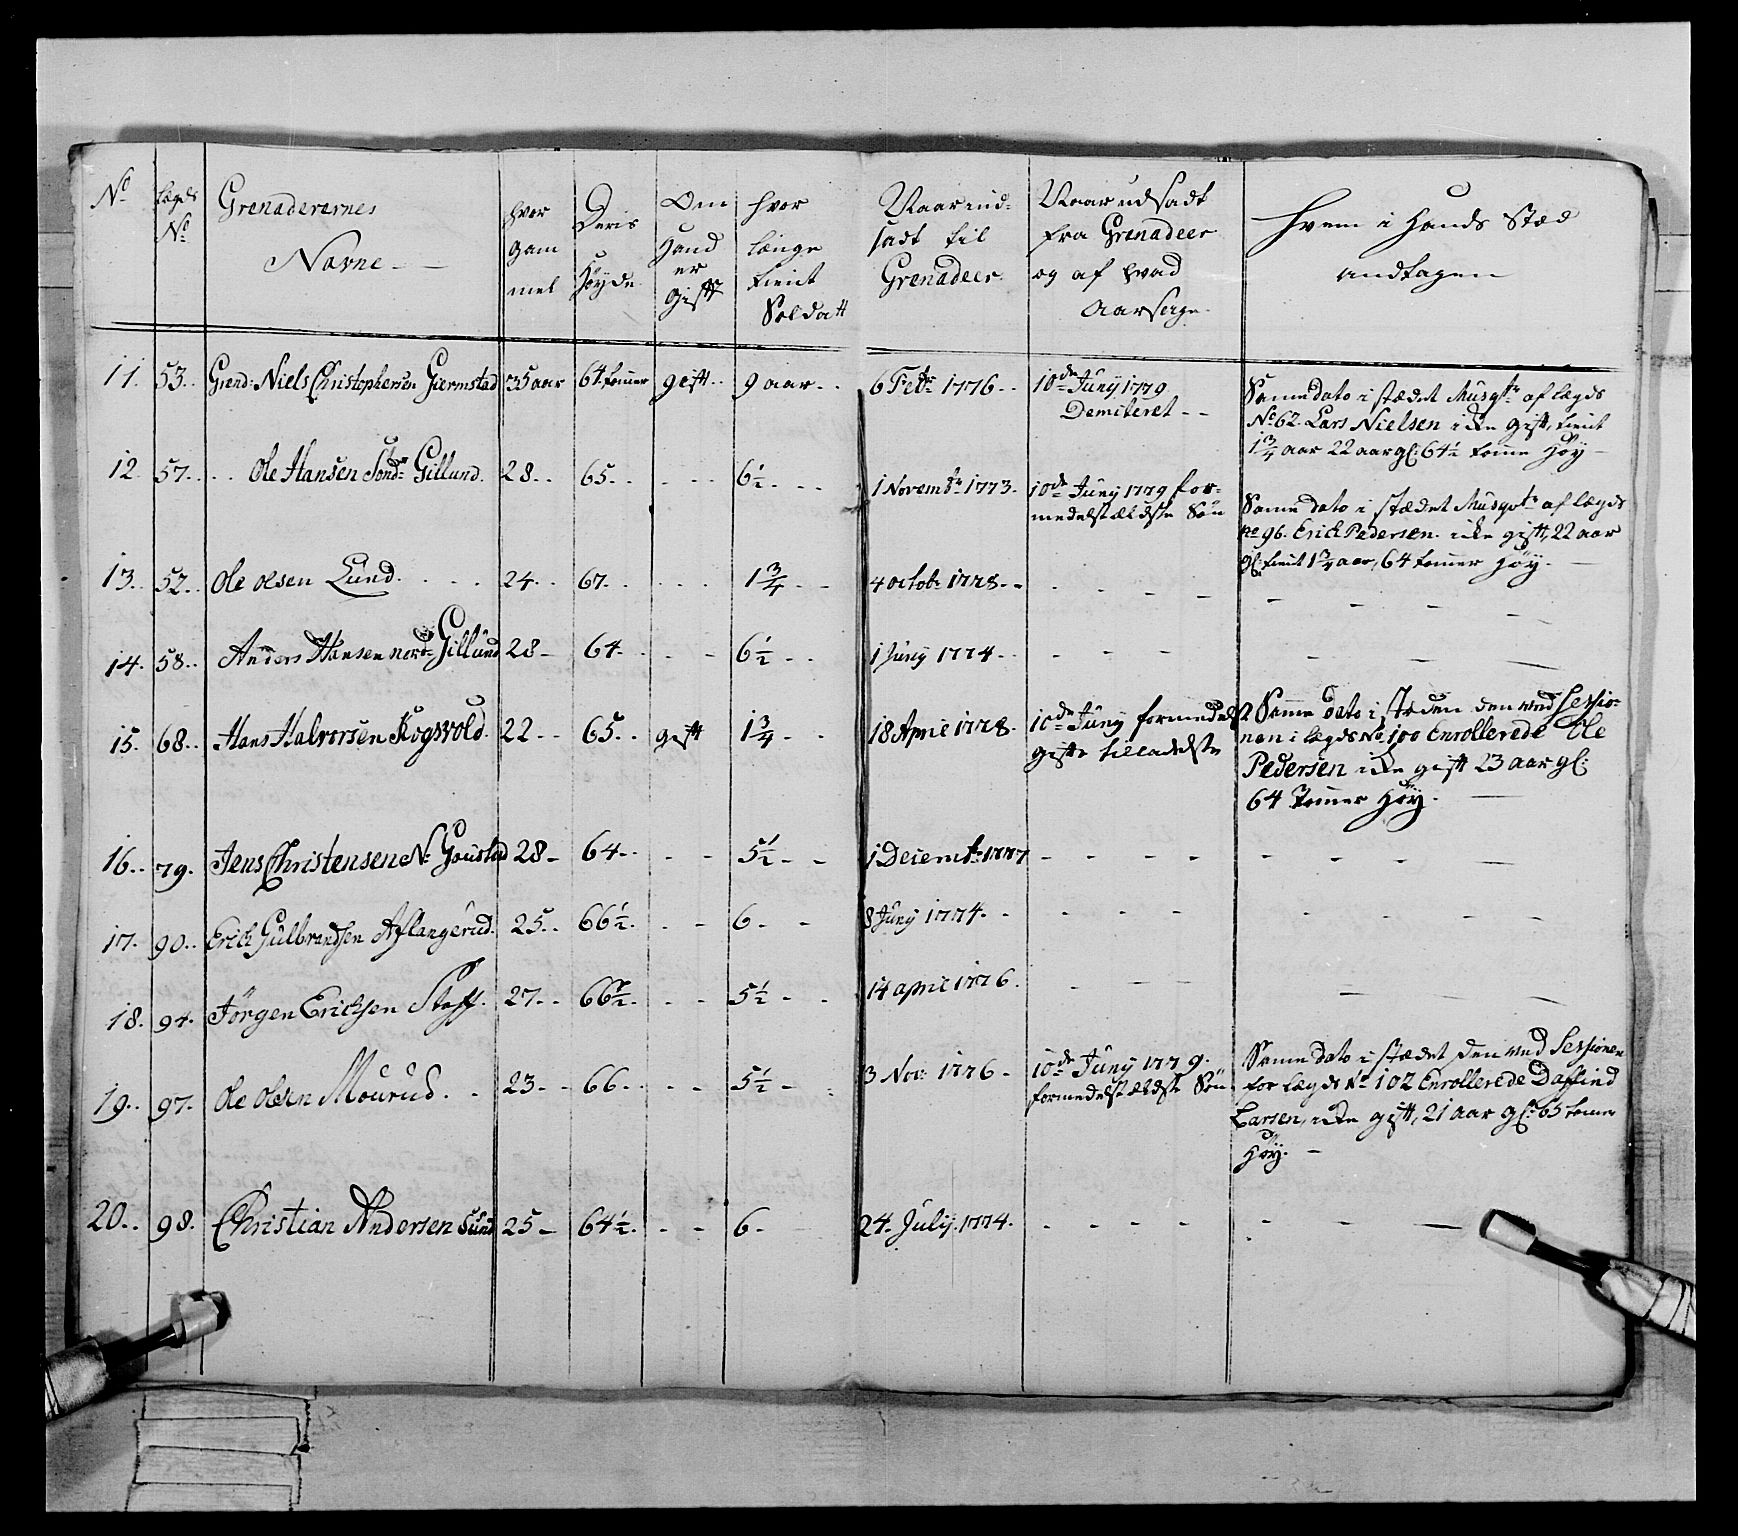 No | Lægds No | Grenaderernes Navne | hvor gam mel | Deris Høyde | Om Hand er Gift | hvor længe tient Soldatt | Naar ind- sadt til Grenadeer | Naar udsadt fra Grenadeer og af hvad Aarsage | hvem i Hands Stæd andtagen
11. | 53. | Grend: Niels Christophersen Giermstad | 35 aar | 64 tommer | gift | 9 aar | 6 Febr 1776 | 10de Junÿ 1779 Demiteret | Samme dato i stædet Musqtr af lægds No 62. Lars Nielsen icke Gift, tient 1 3/4 aar 22 aar gl: 64 1/2 tomme Høÿ
12. | 57. | Ole Hansen Søndr Gillund. | 28 | 65 | | 6 1/2 | 1 Novembr 1773. | 10de Junÿ 1779 for- medelst Ældste Søn | Samme dato i stædet Musqvtr af lægds no 96. Erich Pedersen icke gift, 22 aar gl. tient 1 3/4 aar, 64 tommer Høÿ.
13. | 52. | Ole olsen Lund. | 24 | 67 | | 1 3/4 | 4 octobr 1778 | - - - - | - - - -
14. | 58. | Anders Hansen nord Gillund | 28 | 64 | | 6 1/2 | 1 Junÿ 1774 | - - - | - - - -
15. | 68. | Hans Halvorsen Kogsvold. | 22 | 65 | gift | 1 3/4 | 18 April 1778. | 10de Junÿ formedelst gifte tilladelse | Samme Dato i stæden den ved Sessio- nen i Lægds No 100 Enrollerede Ole Pedersen icke gift 23 aar gl: 64 Tommer Høÿ.
16. | 79. | Jens Christensen N: Goustad | 28 | 64 | | 5 1/2 | 1 Decembr 1777 | - - - - | - - - -
17. | 90. | Erich Gulbrandsen Aflangerud. | 25 | 66 1/2 | | 6 | 8 Junÿ 1774. | - - - | - - - -
18. | 94. | Jørgen Erichsen | 27 | 66 1/2 | | 5 1/2 | 14 april 1776. | - - - | - - - -
19. | 97. | Ole olsen Mourud. | 23 | 66 | | 5 1/2 | 3 Nov: 1776 | 10de Junÿ 1779. formedelst ældste Søn | Samme dato i stædet Den ved Sessionen for Lægds No 102 Enrollerede Daffind Larsen, icke gift, 21 aar gl: 65 tomer Høÿ.
20. | 98. | Christian Andersen Sund | 25 | 64 1/2 | | 6 | 24. Julÿ 1774. | - - - - | - - - -